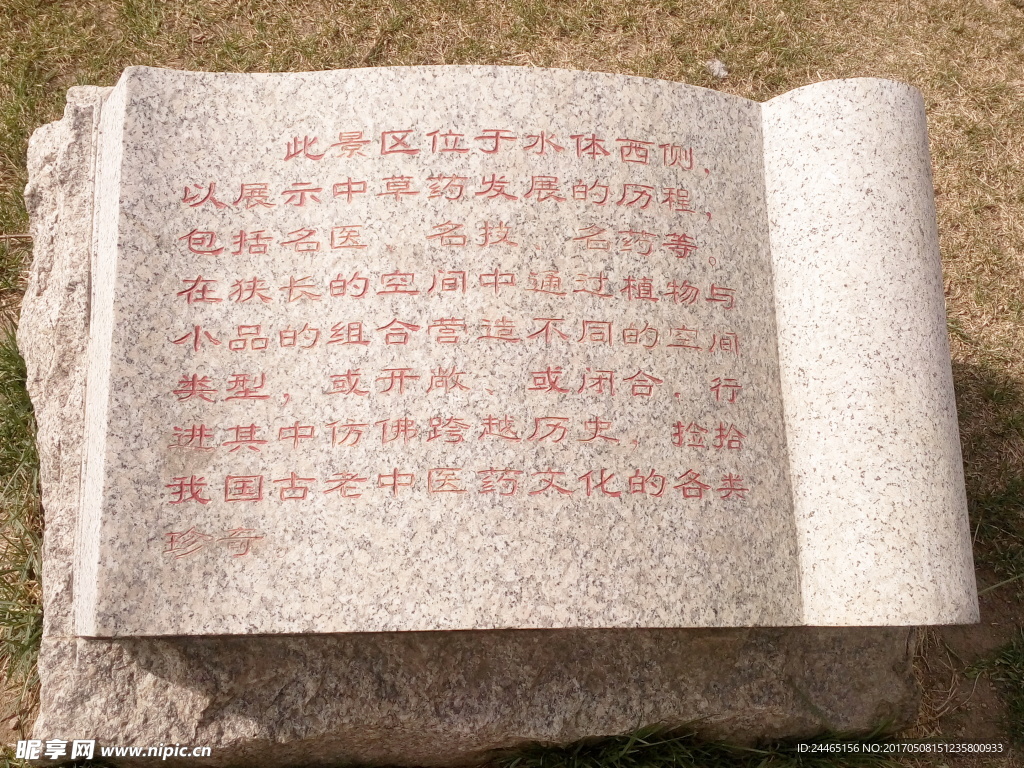 此景区位于水体西侧,
以展示中草药发展的历程,
包括名医、名技、名药等。
在狭长的空间中通过植物与
小品的组合营造不同的空间
类型,或开敞、或闭合,行
进其中仿佛跨越历史,捡拾
我国古老中医药文化的各类
珍奇
昵享网 www.nipic.cn
ID:24465156 NO:20170508151235800933